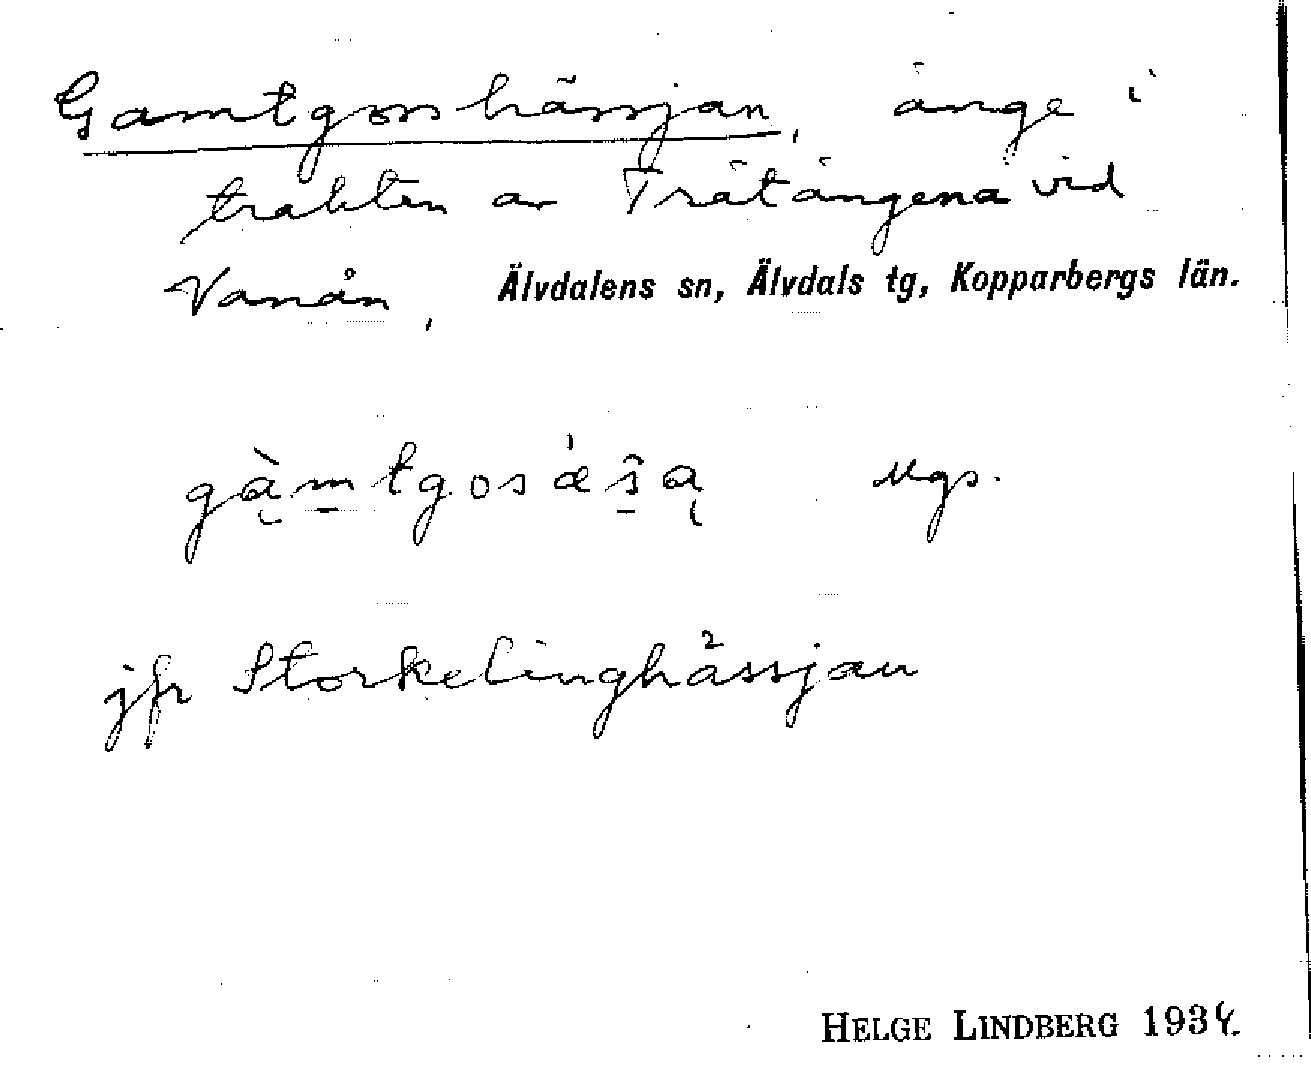 Gamtgosshässjan, änge i
trakten av Trätängena vid
Vanån, Älvdalens sn, Älvdals tg, Kopparbergs län.
gà̰m̲tgosǽŝ̲ą Mgs.
jfr Storkelinghässjan
HELGE LINDBERG 1934.